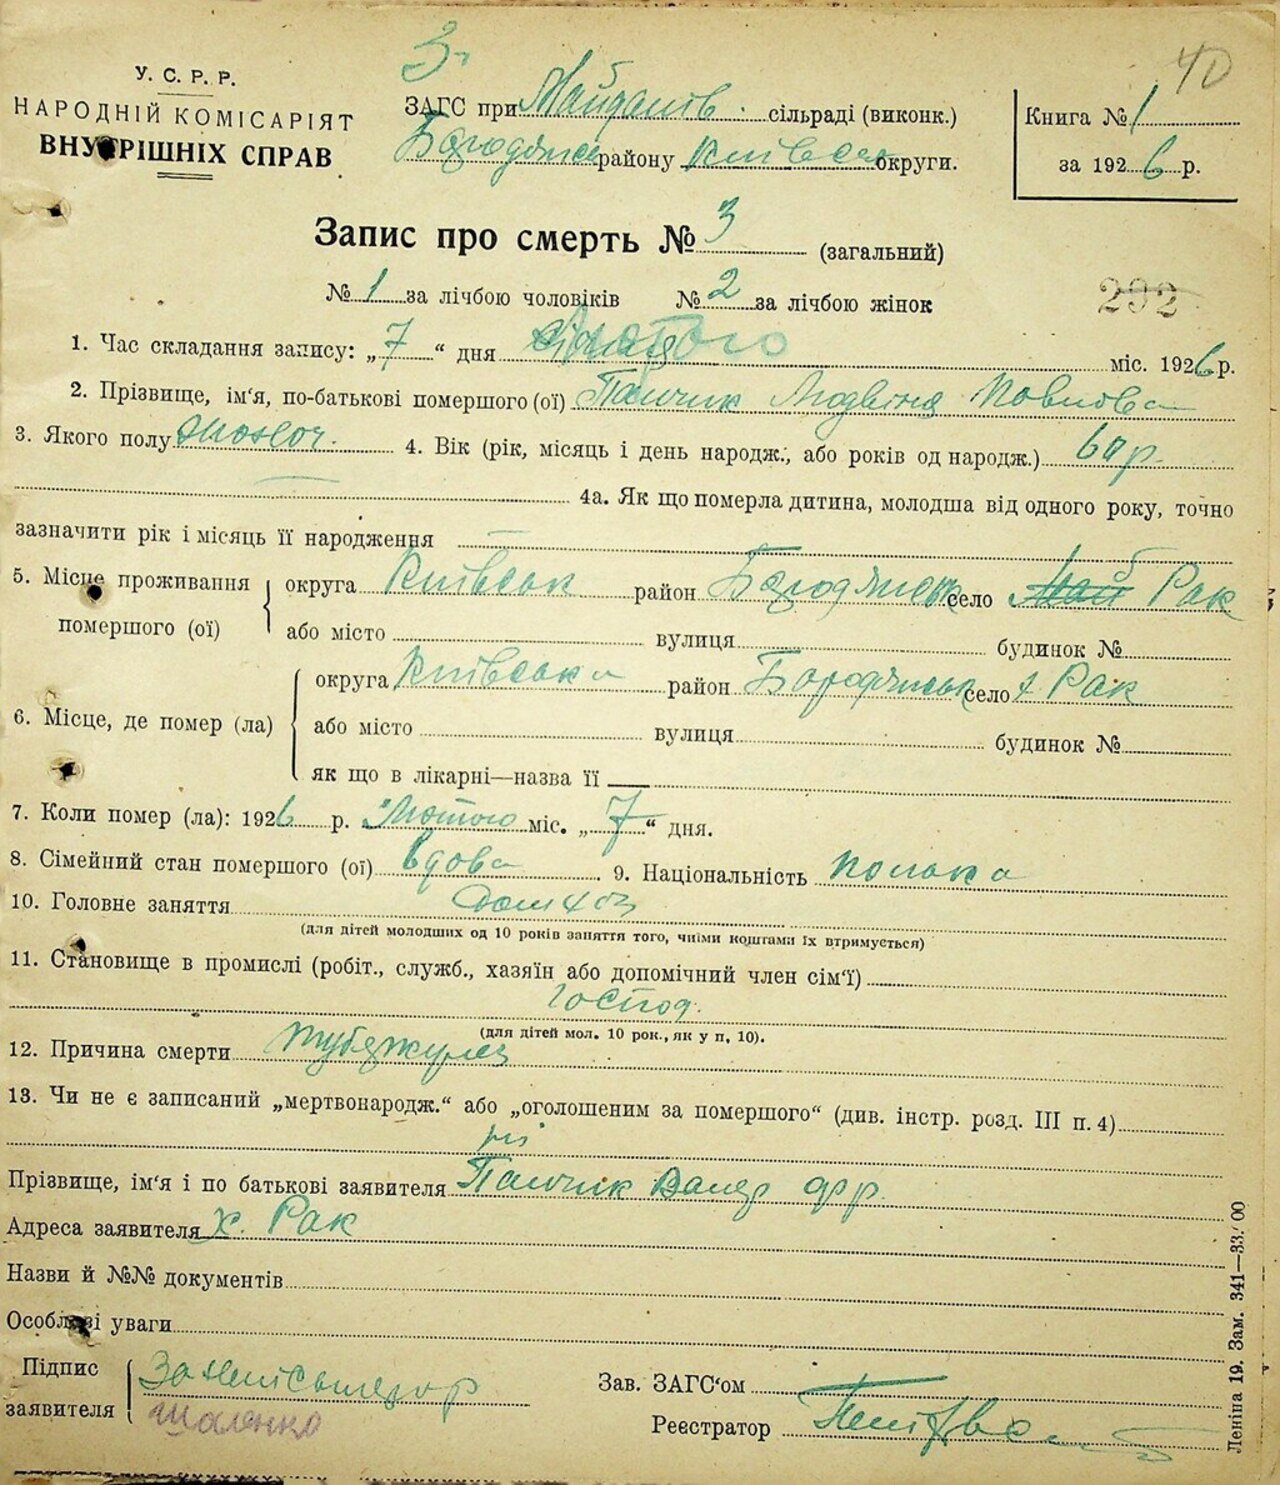 З
40
У. С. Р. Р.
НАРОДНІЙ КОМІСАРІЯТ
ВНУТРІШНІХ СПРАВ
ЗАГС при Майданів. сільраді (виконк.)
району округи.
Книга № 1
за 1926 р.
Запис про смерть № 3 (загальний)
№ 1 за лічбою чоловіків № 2 за лічбою жінок
292
1. Час складання запису: „7“ дня Лютого міс. 1926 р.
2. Прізвище, ім'я, по-батькові помершого (ої) Панчик Людвіна Павлова
3. Якого полу 4. Вік (рік, місяць і день народж., або років од народж.) 60 р.
4а. Як що померла дитина, молодша від одного року, точно
зазначити рік і місяць її народження
5. Місце проживання помершого (ої) округа Київськ район Бородянськ село Май Рак
або місто вулиця будинок №
6. Місце, де помер (ла) округа Київська район Бородянськ село х Рак
або місто вулиця будинок №
як що в лікарні—назва її
7. Коли помер (ла): 1926 р. Лютого міс. „7“ дня.
8. Сімейний стан помершого (ої) вдова 9. Національність полька
10. Головне заняття Дом хоз
(для дітей молодших од 10 років заняття того, чиїми коштами їх втримується)
11. Становище в промислі (робіт., служб., хазяїн або допомічний член сім'ї)
господ.
(для дітей мол. 10 рок., як у п, 10).
12. Причина смерти
13. Чи не є записаний „мертвонародж.“ або „оголошеним за помершого“ (див. інстр. розд. III п. 4)
ні
Прізвище, ім'я і по батькові заявителя Панчик Валер фр.
Адреса заявителя х. Рак
Назви й №№ документів
Особливі уваги
Підпис заявителя
Шаленко
Зав. ЗАГС'ом
Реєстратор
Леніна 19. Зам. 341—33.000